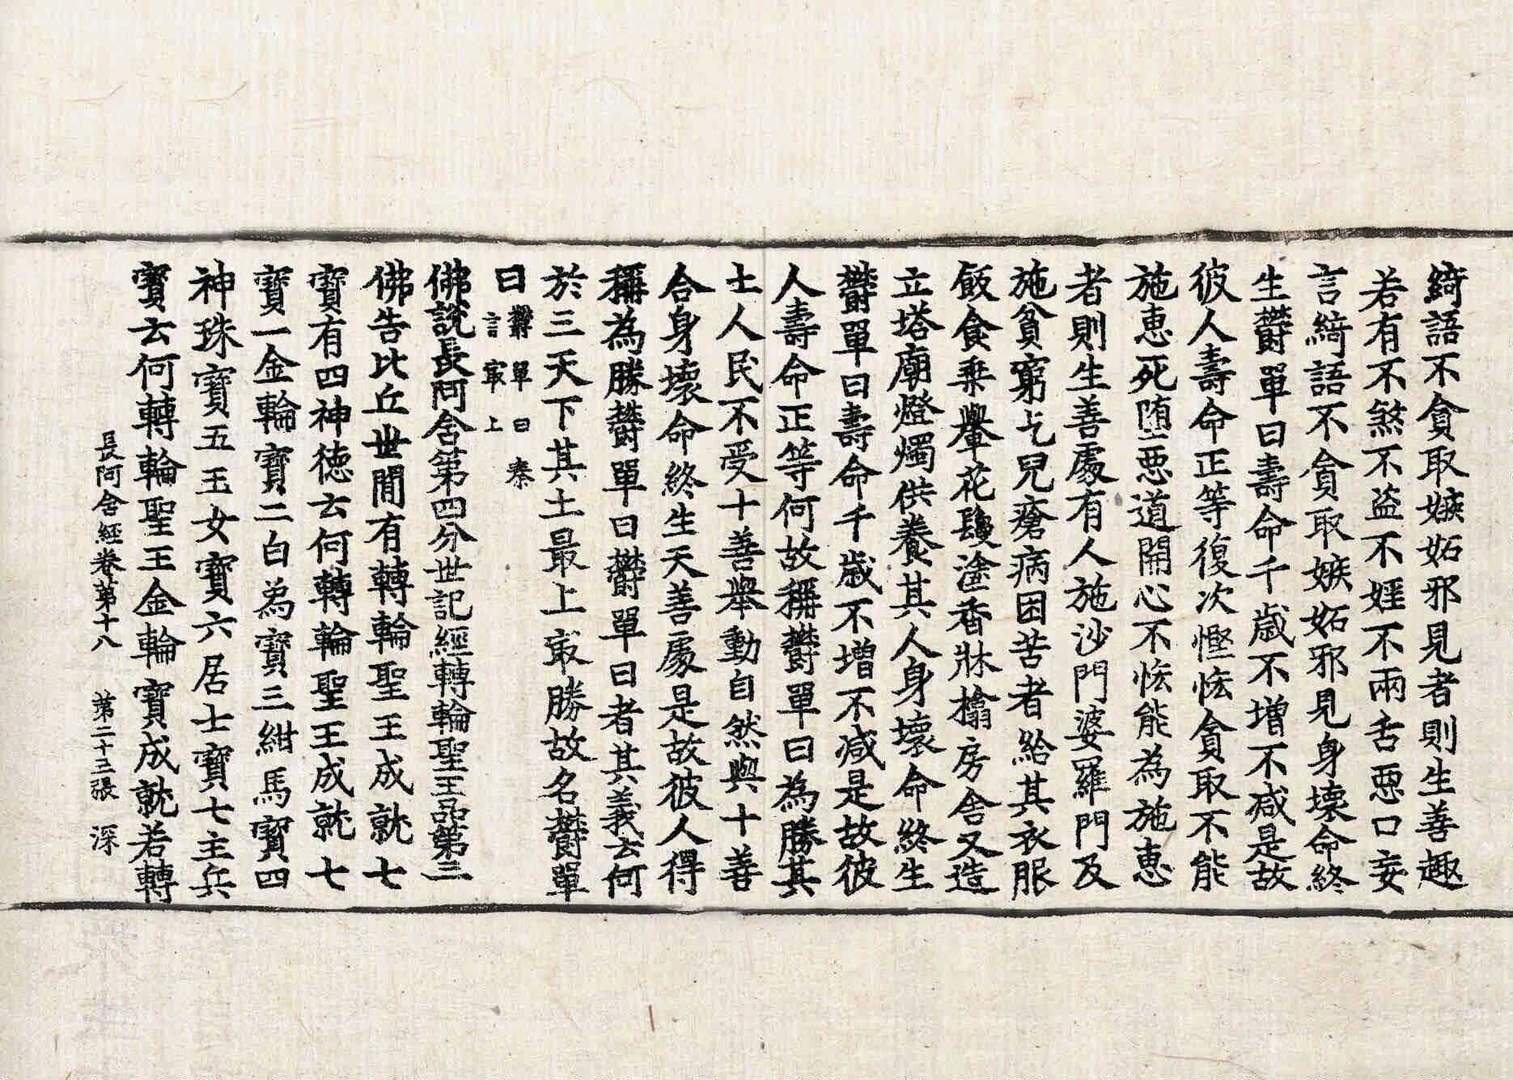 綺語不貪取嫉妬邪見者則生善趣
若有不煞不盗不婬不兩舌惡口妄
言綺語不貪取嫉妬邪見身壞命終
生欝單曰壽命千歲不增不减是故
彼人壽命正等復次慳悋貪取不能
施惠死堕惡道開心不悋能為施惠
者則生善處有人施沙門婆羅門及
施貧窮乞兒瘡病困苦者給其衣服
飯食乘轝華花鬘塗香牀榻房舍又造
立塔廟燈燭供養其人身壞命終生
欝單曰壽命千歲不增不减是故彼
人壽命正等何故稱欝單曰為勝其
土人民不受十善舉動自然與十善
合身壞命終生天善處是故彼人得
稱為勝欝單曰欝單曰者其義云何
於三天下其土最上㝡勝故名欝單
曰欝單曰秦言㝡上
佛說長阿含第四分世記經轉輪聖王品第三
佛告比丘世閒有轉輪聖王成就七
寶有四神徳云何轉輪聖王成就七
寶一金輪寶二白為寶三紺馬寶四
神珠寶五玉女寶六居士寶七主兵
寶云何轉輪聖王金輪寶成就若轉
長阿含經卷第十八 第二十三張 深